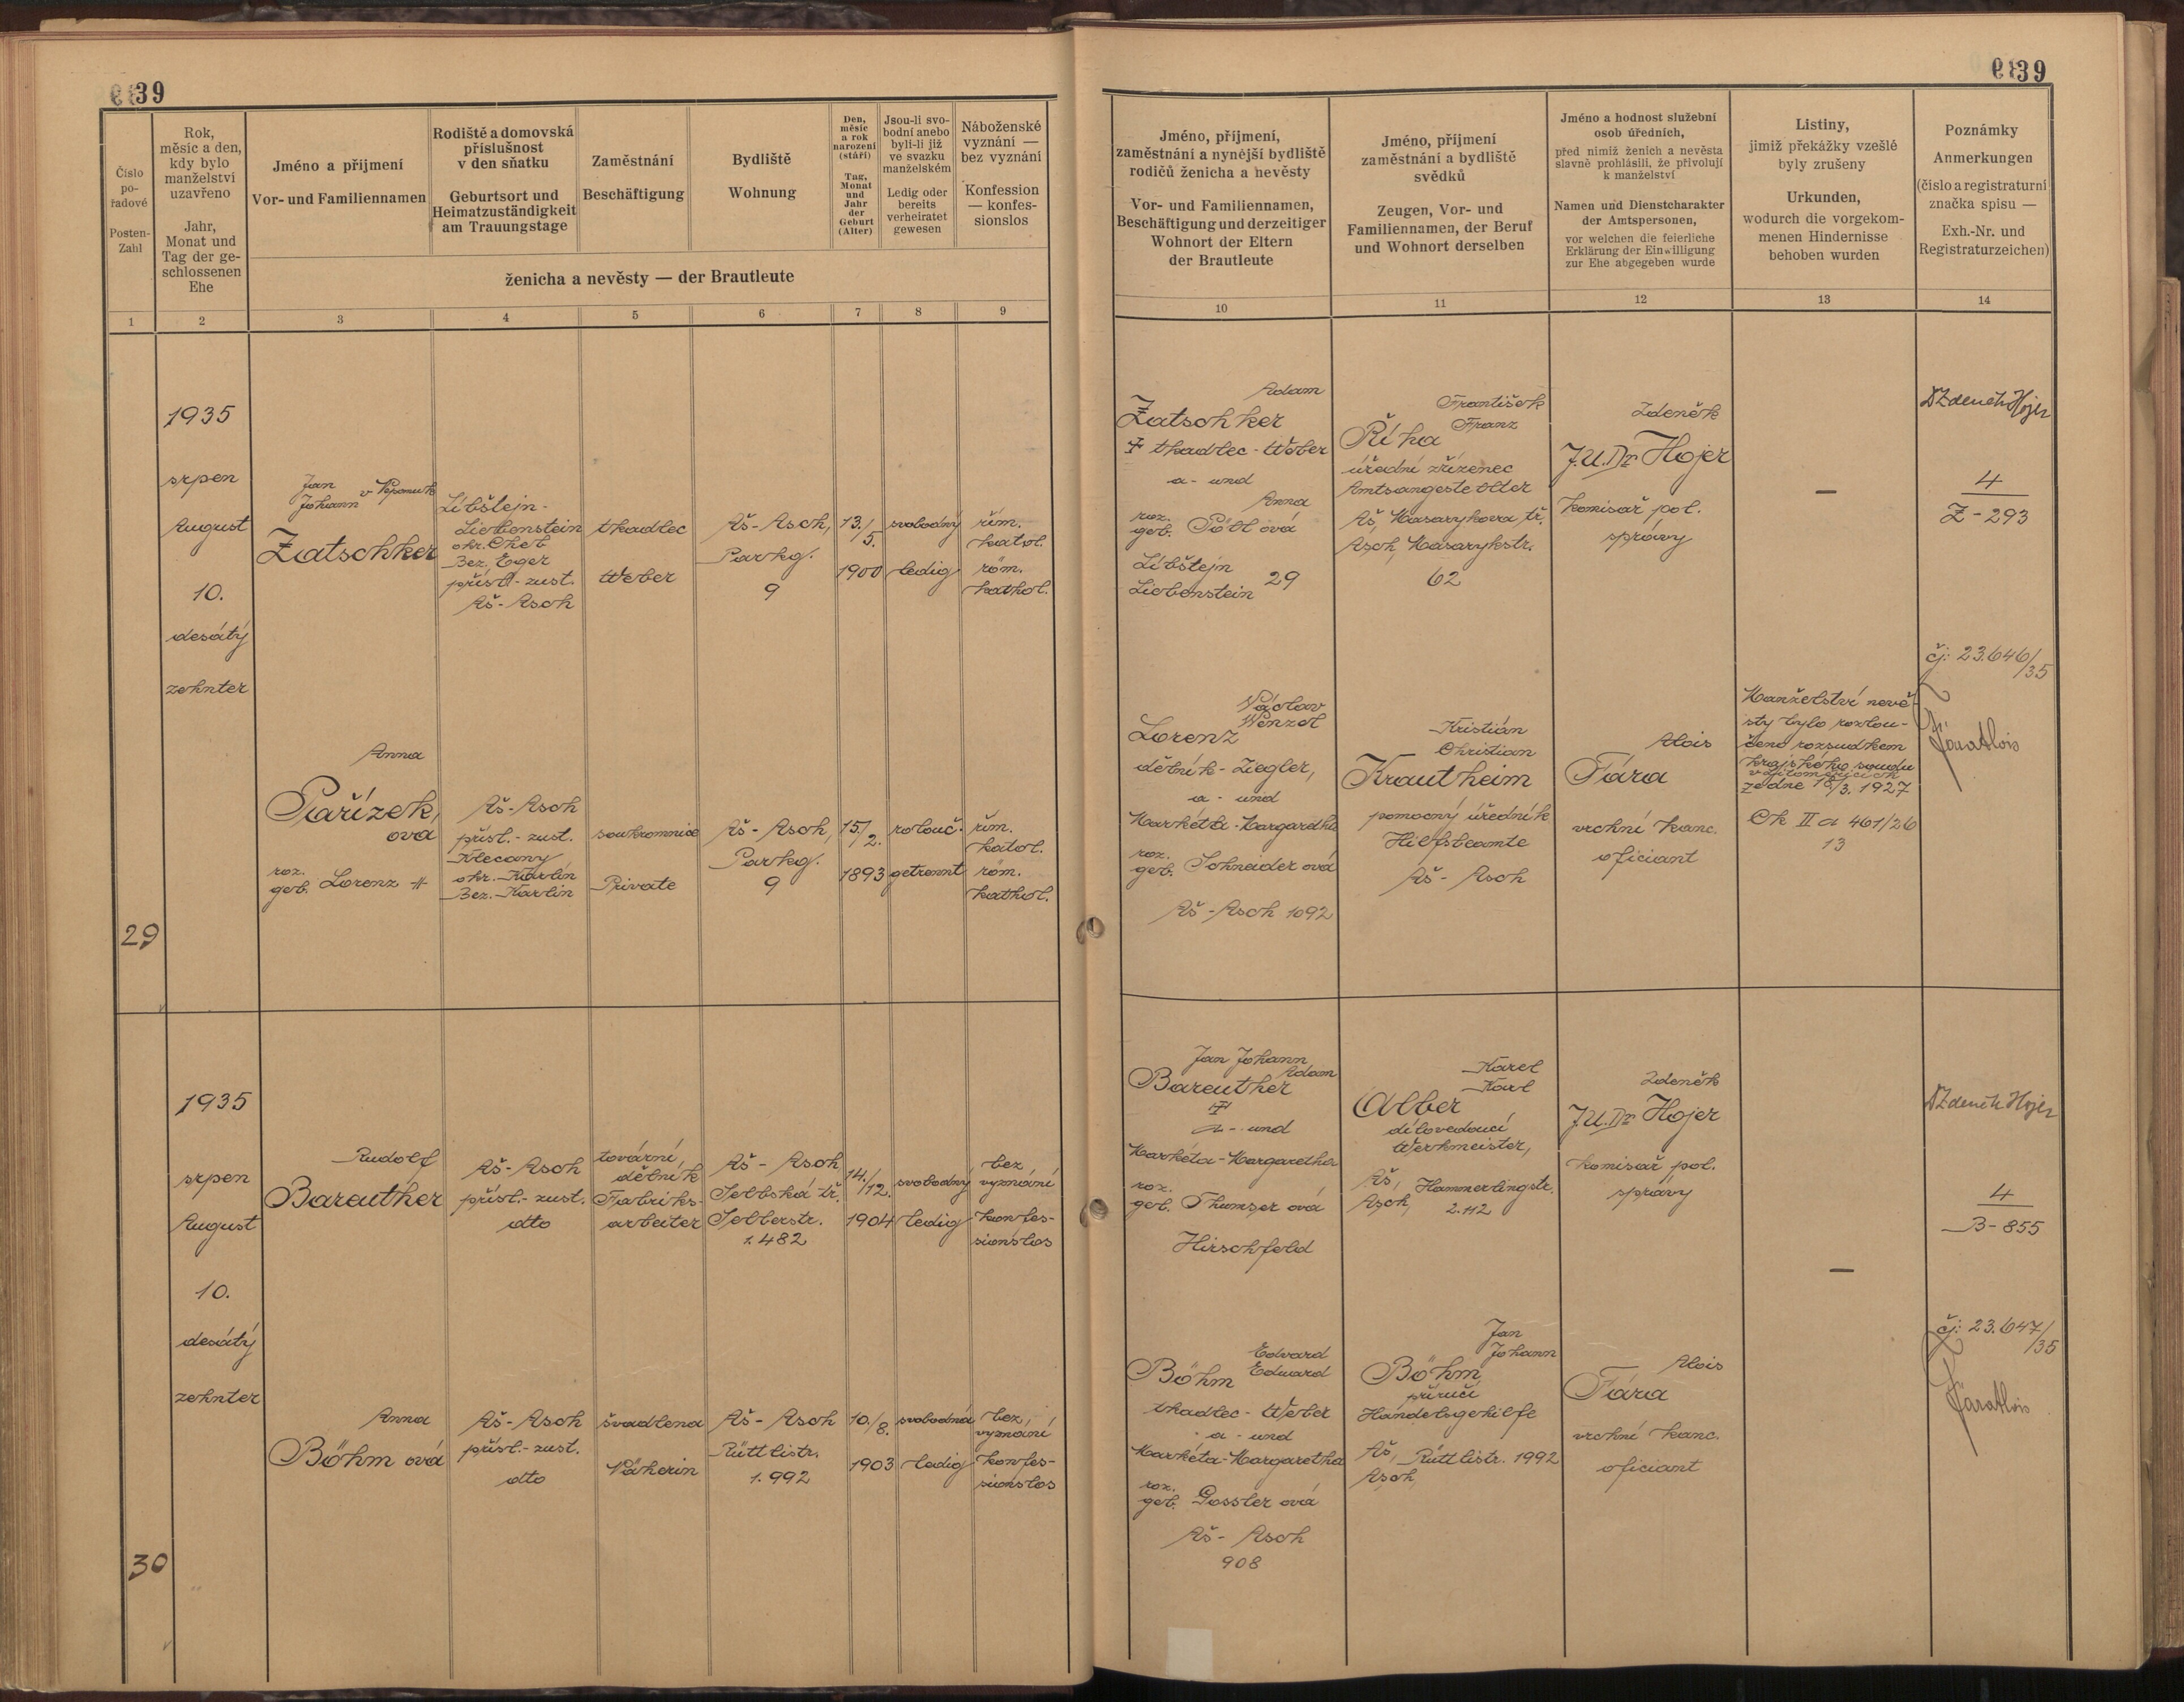 39
39
Číslo
po-
řadové
Posten-
Zahl
Rok,
měsíc a den,
kdy bylo
manželství
uzavřeno
Jahr,
Monat und
Tag der ge-
schlossenen
Ehe
Jméno a příjmení
Vor- und Familiennamen
Rodiště a domovská
příslušnost
v den sňatku
Geburtsort und
Heimatzuständigkeit
am Trauungstage
Zaměstnání
Beschäftigung
Bydliště
Wohnung
Den,
měsíc
a rok
narození
(stáří)
Tag,
Monat
und
Jahr
der
Geburt
(Alter)
Jsou-li svo-
bodní anebo
byli-li již
ve svazku
manželském
Ledig oder
bereits
verheiratet
gewesen
Náboženské
vyznání —
bez vyznání
Konfession
— konfes-
sionslos
ženicha a nevěsty — der Brautleute
Jméno, příjmení,
zaměstnání a nynější bydliště
rodičů ženicha a nevěsty
Vor- und Familiennamen,
Beschäftigung und derzeitiger
Wohnort der Eltern
der Brautleute
Jméno, příjmení
zaměstnání a bydliště
svědků
Zeugen, Vor- und
Familiennamen, der Beruf
und Wohnort derselben
Jméno a hodnost služební
osob úředních,
před nimiž ženich a nevěsta
slavně prohlásili, že přivolují
k manželství
Namen und Dienstcharakter
der Amtspersonen,
vor welchen die feierliche
Erklärung der Einwilligung
zur Ehe abgegeben wurde
Listiny,
jimiž překážky vzešlé
byly zrušeny
Urkunden,
wodurch die vorgekom-
menen Hindernisse
behoben wurden
Poznámky
Anmerkungen
(číslo a registraturní
značka spisu —
Exh.-Nr. und
Registraturzeichen)
1 2 3 4 5 6 7 8 9 10 11 12 13 14
29
1935
srpen
August
10.
desátý
zehnter
Jan
Johann v Nepomuk
Zatschker
Libštejn-
Liebenstein
okr. Cheb
Bez. Eger
přísl.- zust.
Aš-Asch
tkadlec
Weber
Aš-Asch,
Parkg.
9
13./
5.
1900
svobodný
ledig
řím.
katol.
röm.
kathol.
Adam
Zatschker
‡ tkadlec - Weber
a - und
Anna
roz.
geb. Pötl ová
Libštejn
Liebenstein 29
František
Franz
Říha
úřední zřízenec
Amtsangestellter
Aš, Masarykova tř.
Asch, Masarykstr.
62
Zdeněk
J.U.Dr Hojer
komisař pol.
správy
—
Dr Zdeněk Hojer
4
Z - 293
Anna
Pařízek,
ova
roz.
geb. Lorenz
Aš-Asch
přísl.- zust.
Klecany
okr. Karlín
Bez. Karlín
soukromnice
Private
Aš-Asch,
Parkg.
9
15./
2.
1893
rozlouč.
getrennt
řím.
katol.
röm.
kathol.
Václav
Wenzel
Lorenz
dělník - Ziegler,
a - und
Markéta - Margaretha
roz.
geb. Schneider ová
Aš-Asch 1092
Kristián
Christian
Krautheim
pomocný úředník
Hilfsbeamte
Aš - Asch
Alois
Fára
vrchní kanc.
oficiant
Manželství nevě-
sty bylo rozlou-
čeno rozsudkem
krajského soudu
v Litoměřicích
ze dne 18/3. 1927
Ck II a 461/26
13
čj: 23.646/
35
Fára Alois
30
1935
srpen
August
10.
desátý
zehnter
Rudolf
Bareuther
Aš-Asch
přísl.- zust.
dto
tovární
dělník
Fabriks-
arbeiter
Aš - Asch
Selbská tř.
Selberstr.
1.482
14./
12.
1904
svobodný
ledig
bez
vyznání
konfes-
sionslos
Jan Johann
Adam
Bareuther
‡
a - und
Markéta - Margaretha
roz.
geb. Thumser ová
Hirschfeld
Karel
Karl
Alber
dílovedoucí
Werkmeister,
Aš,
Asch, Hammerlingstr.
2.112
Zdeněk
J.U.Dr Hojer
komisař pol.
správy
—
Dr Zdeněk Hojer
4
B - 855
Anna
Böhm ová
Aš-Asch
přísl.- zust.
dto
švadlena
Näherin
Aš - Asch
Rüttlistr.
1.992
10./
8.
1903
svobodná
ledig
bez
vyznání
konfes-
sionslos
Edvard
Eduard
Böhm
tkadlec - Weber
a - und
Markéta - Margaretha
roz.
geb. Gossler ová
Aš - Asch
908
Jan
Johann
Böhm
příručí
Handelsgehilfe
Aš,
Asch, Rüttlistr. 1992
Alois
Fára
vrchní kanc.
oficiant
čj: 23.647/
35
Fára Alois